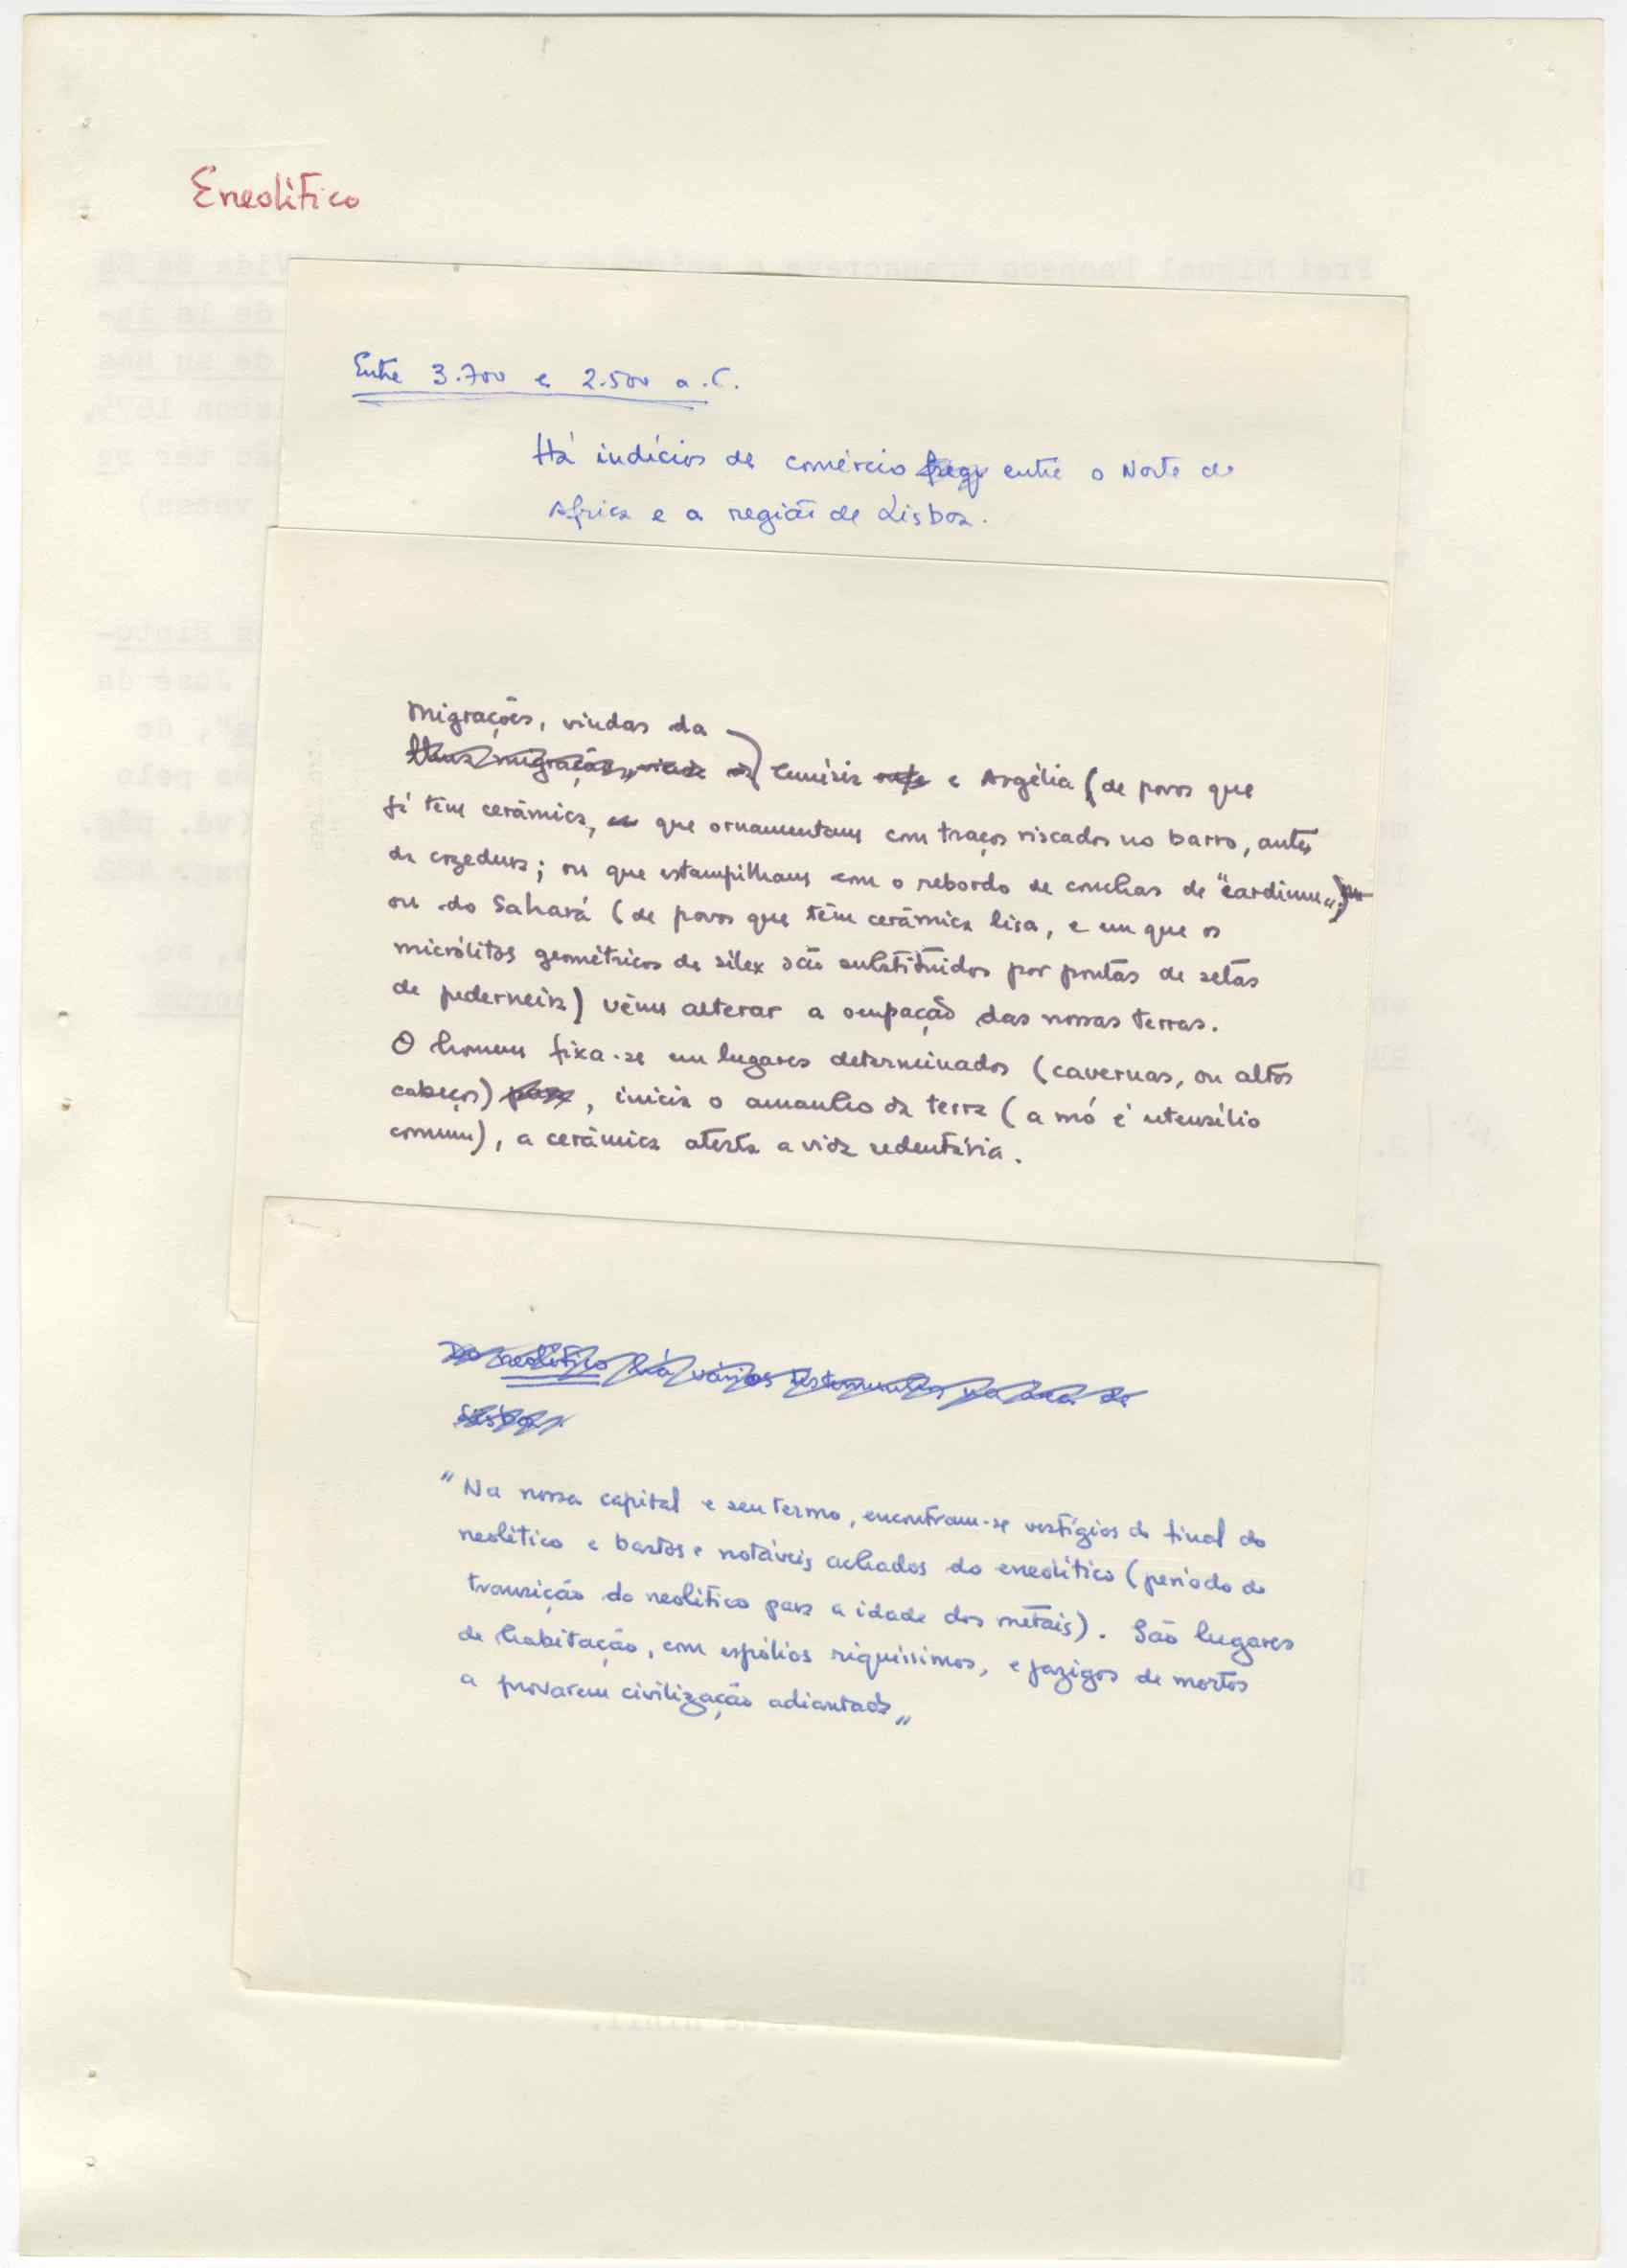 Eneolítico
Entre 3.700 e 2.500 a.C.
Há indícios de comércio entre o Norte de
Africa e a região de Lisboa.
Migrações, vindas da
Tunísia e Argélia (de povos que
já têm cerâmica, que ornamentam com traços riscados no barro, antes
da cozedura; ou que estampilham com o rebordo de conchas de "cardium")
ou do Sahará (de povos que têm cerâmica lisa, e em que os
micrólitos geométricos de sílex são substituidos por pontas de setas
de pederneira) vêm alterar a ocupação das nossas terras.
O homem fixa-se em lugares determinados (cavernas, ou altos
cabeços), inicia o amanho da terra (a mó é utensílio
comum), a cerâmica atesta a vida sedentária.
Do neolítico há vários testemunhos na área de
Lisboa.
"Na nossa capital e seu termo, encontram-se vestígios do final do
neolítico e bastos e notáveis achados do eneolítico (período de
transição do neolítico para a idade dos metais). São lugares
de habitação, com espólios riquíssimos, e jazigos de mortos
a provarem civilização adiantada"